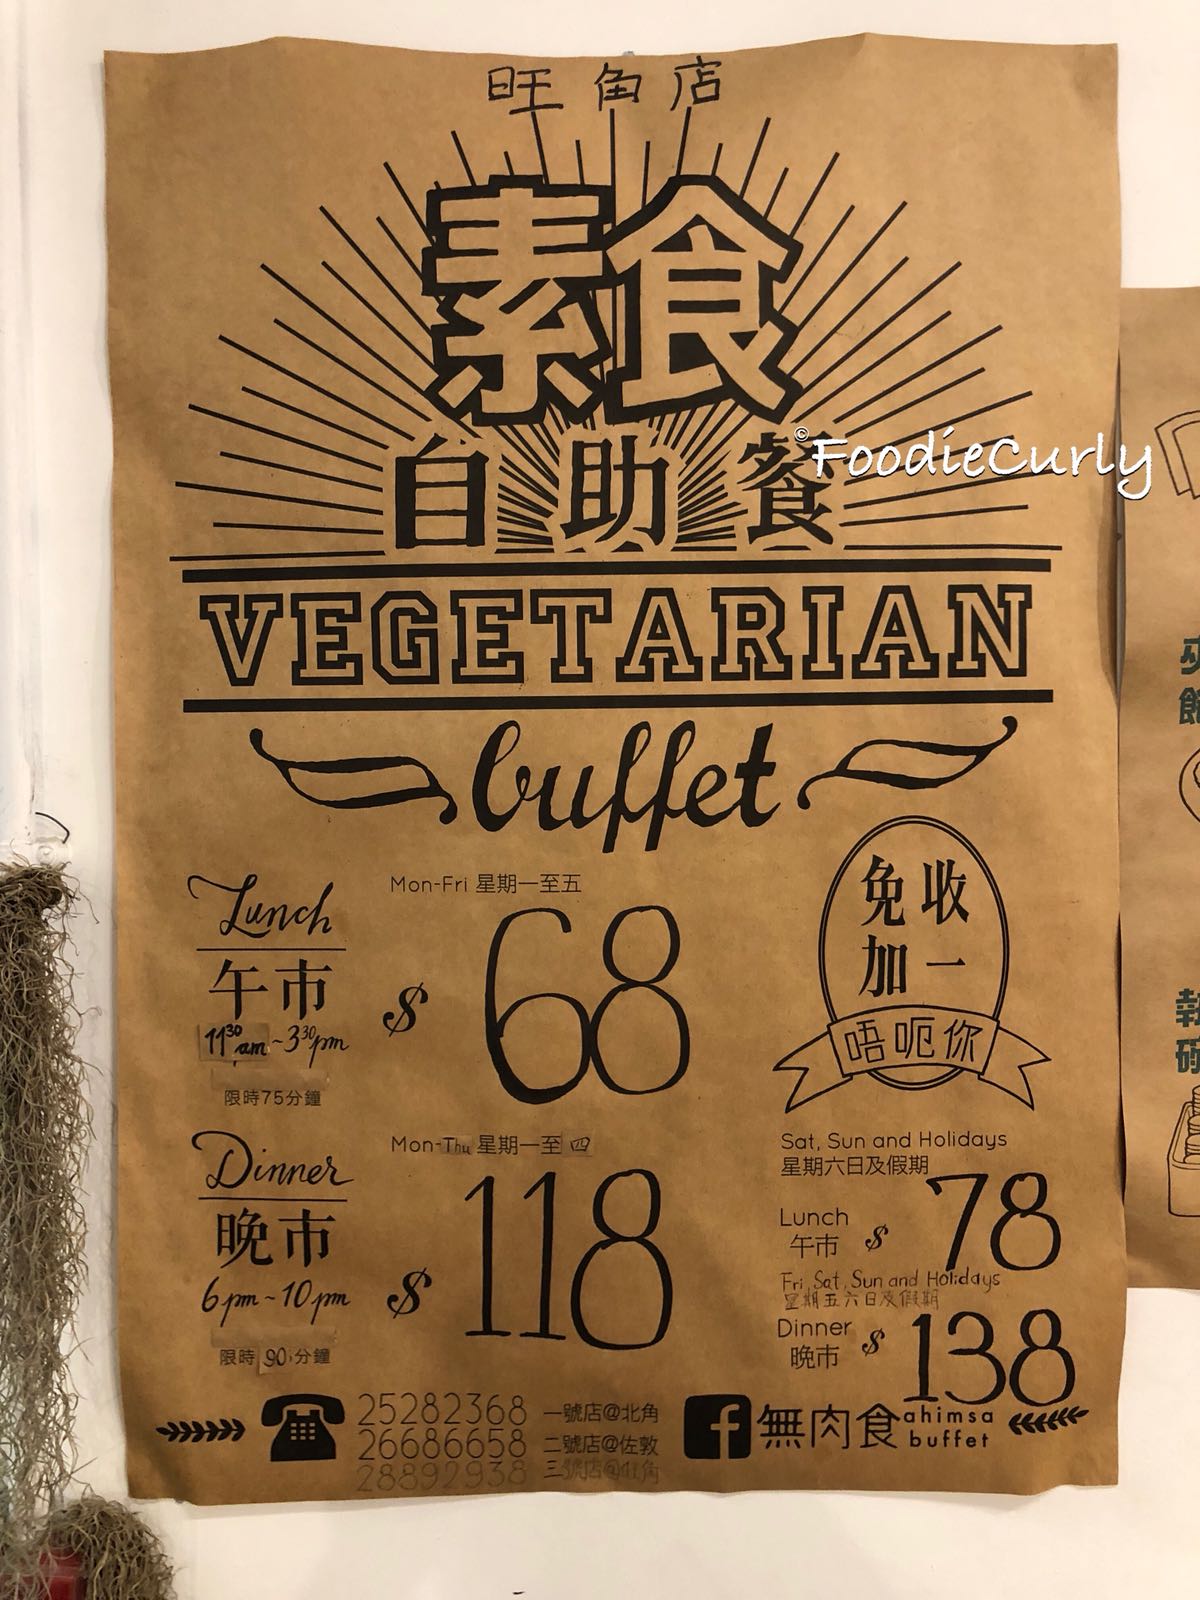 旺角店
素食
自助餐
©FoodieCurly
VEGETARIAN
buffet
Lunch
午市
11³⁰am ~ 3³⁰pm
限時75分鐘
Mon-Fri 星期一至五
$ 68
免收
加一
唔呃你
Dinner
晚市
6pm ~ 10pm
限時90分鐘
Mon-Thu 星期一至四
$ 118
Sat, Sun and Holidays
星期六日及假期
Lunch
午市 $ 78
Fri, Sat, Sun and Holidays
星期五六日及假期
Dinner
晚市 $ 138
25282368 一號店@北角
26686658 二號店@佐敦
28892938 三號店@旺角
無肉食 ahimsa
buffet